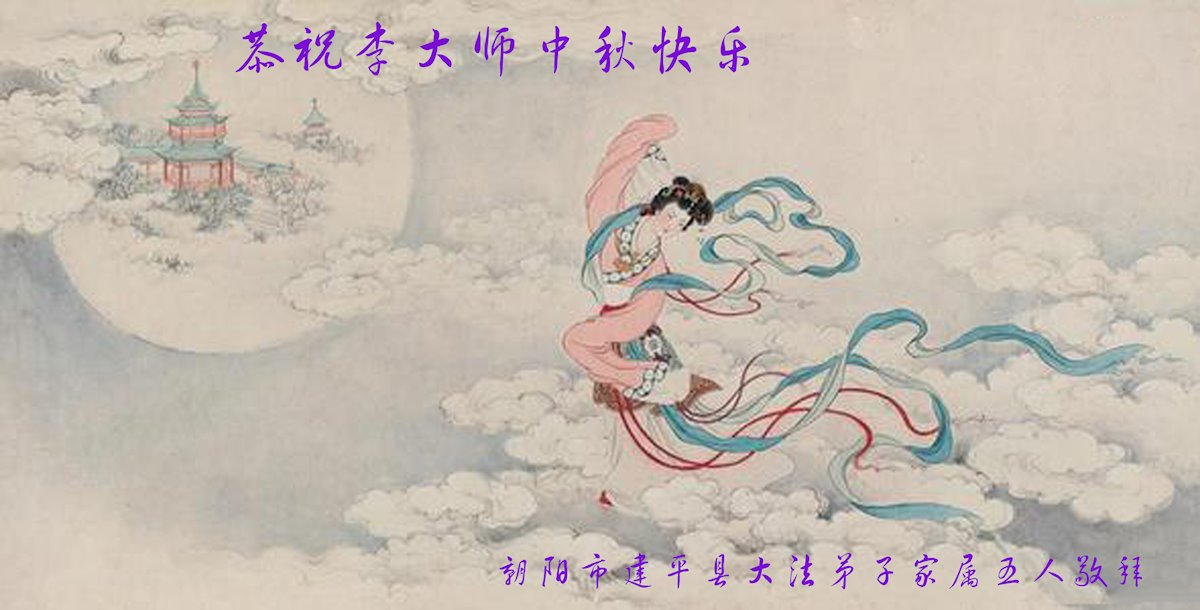 恭祝李大师中秋快乐
朝阳市建平县大法弟子家属五人敬拜